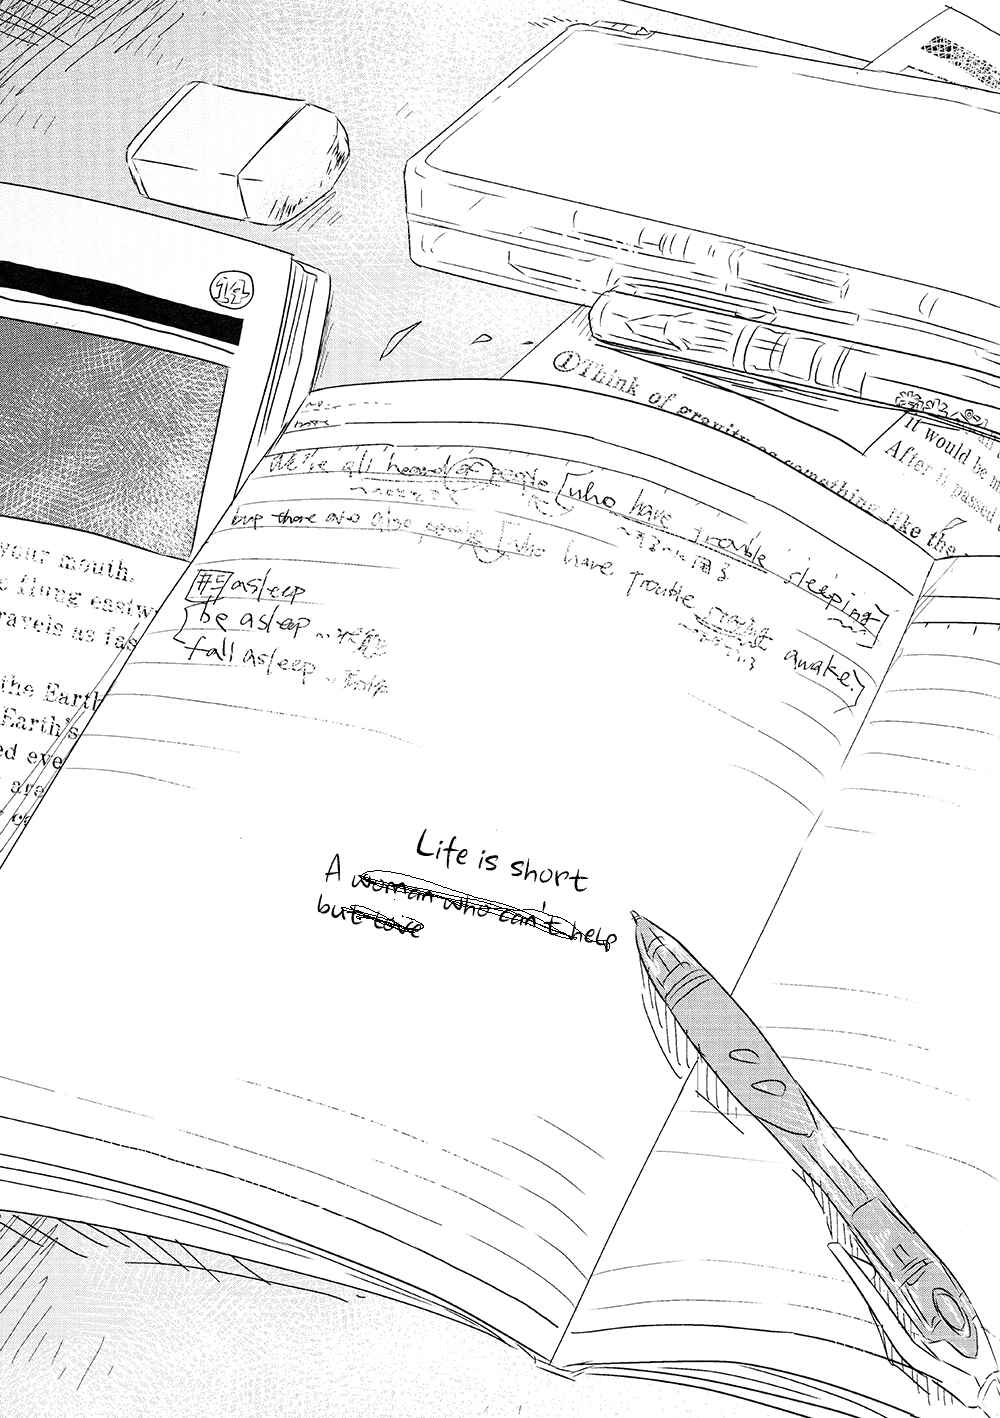 14
①Think of gravity as something like the
it would be m
After it passed
We've all heard of people who have trouble sleeping
but there are also people who have trouble staying awake.
#5 asleep
be asleep
fall asleep
your mouth.
flung eastw
ravels as fas
the Earth
Earth's
ed eve
are
Life is short
A woman who can't help
but love